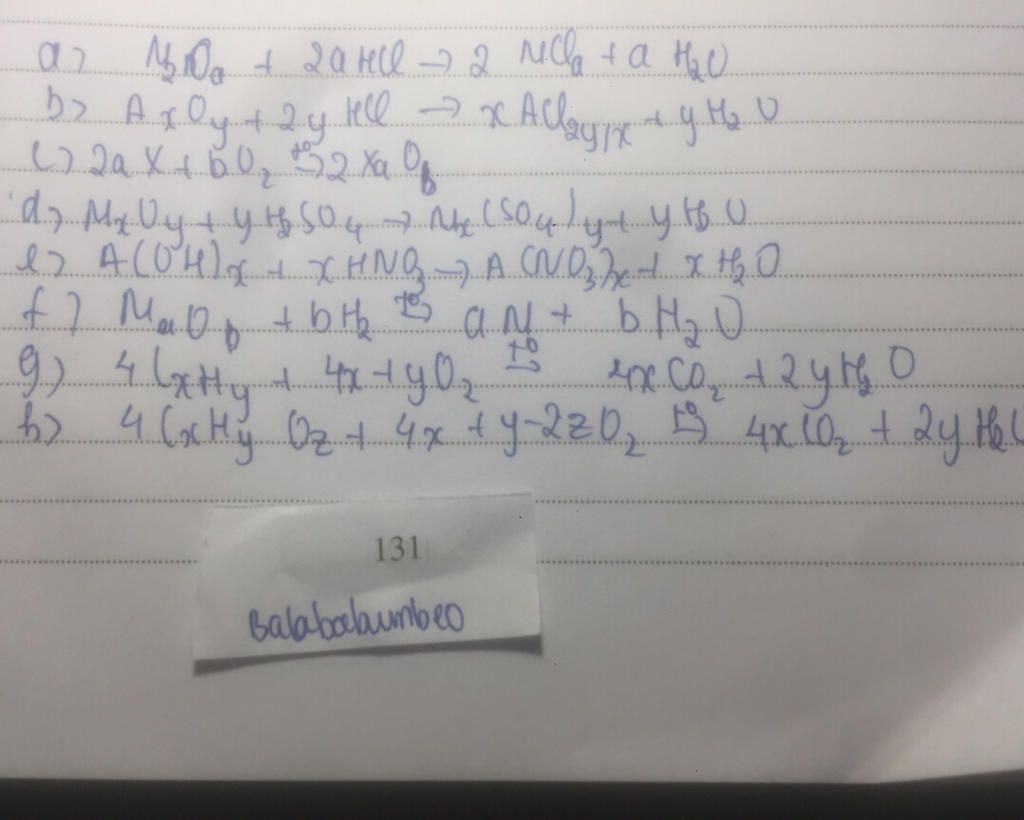 a) M₂Oₐ + 2aHCl → 2 MClₐ + a H₂O
b) AₓOy + 2y HCl → x ACl₂y/ₓ + y H₂O
c) 2a X + bO₂ t⁰→ 2 XaOb
d) MₓOy + yH₂SO₄ → Mₓ(SO₄)y + y H₂O
e) A(OH)ₓ + x HNO₃ → A(NO₃)ₓ + x H₂O
f) MaOb + bH₂ t⁰→ aM + b H₂O
g) 4CxHy + 4x+yO₂ t⁰→ 4xCO₂ + 2yH₂O
h) 4CxHyOz + 4x+y-2zO₂ t⁰→ 4xCO₂ + 2yH₂
131
Balabalaumbeo